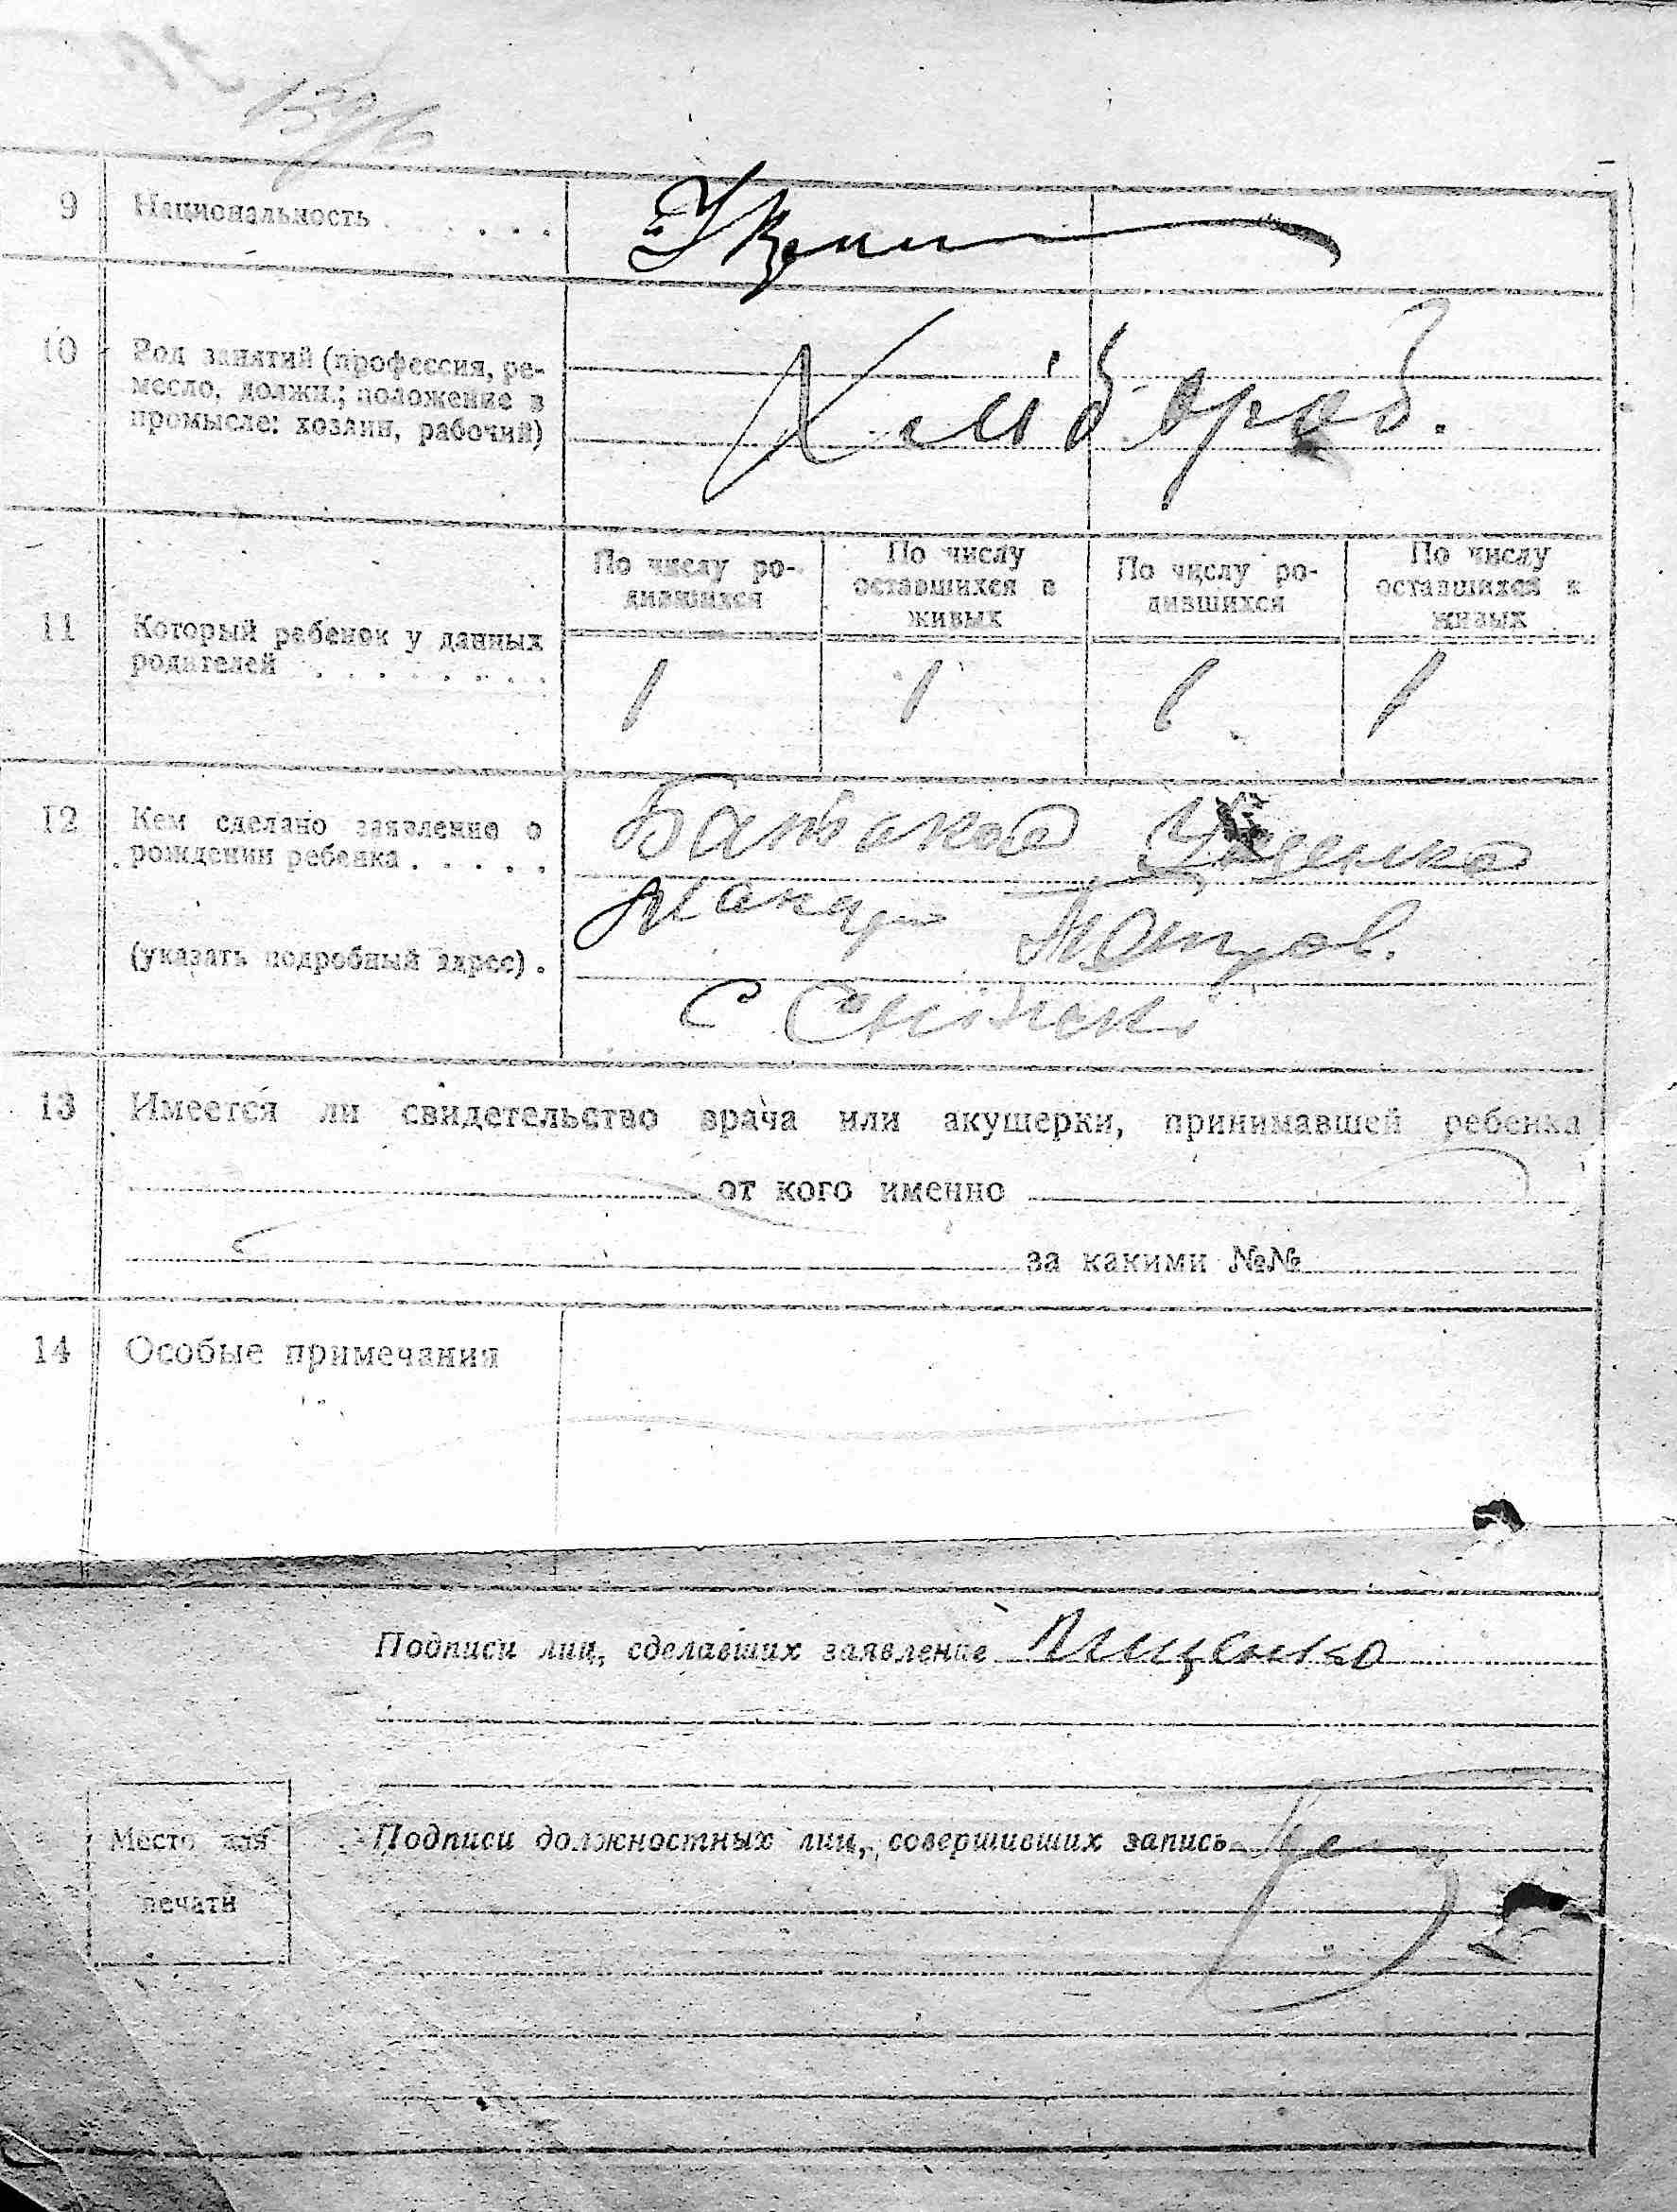 9 Национальность . . . . . . Укр
10 Род занятий (профессия, ре-
месло, должн.; положение в
промысле: хозяин, рабочий)
Хлібороб.
По числу ро-
дившихся
По числу
оставшихся в
живых
По числу ро-
дившихся
По числу
оставшихся в
живых
11 Который ребенок у данных
родителей . . . . . . . .
1 1 1 1
12 Кем сделано заявление о
рождении ребенка . . . . .
Батьков Іщенко
Макар
(указать подробный адрес) .
с Сніжки
13 Имеется ли свидетельство врача или акушерки, принимавшей ребенка
от кого именно
за какими №№
14 Особые примечания
Подписи лиц, сделавших заявление Іщенко
Место для
печати
Подписи должностных лиц, совершивших запись